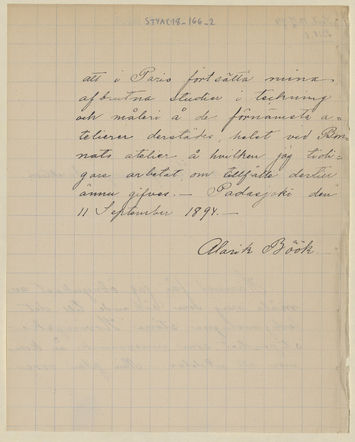 STYAC18-166-2
att i Paris fortsätta mina
afbrutna studier i teckning
och måleri å de förnämsta a-
telierer derstädes, helst ved Bon-
nats atelier, å hvilken jag tidi-
gare arbetat om tillfälle dertill
ännu gifves. — Padasjoki den
11 September 1894. —
Alarik Böök